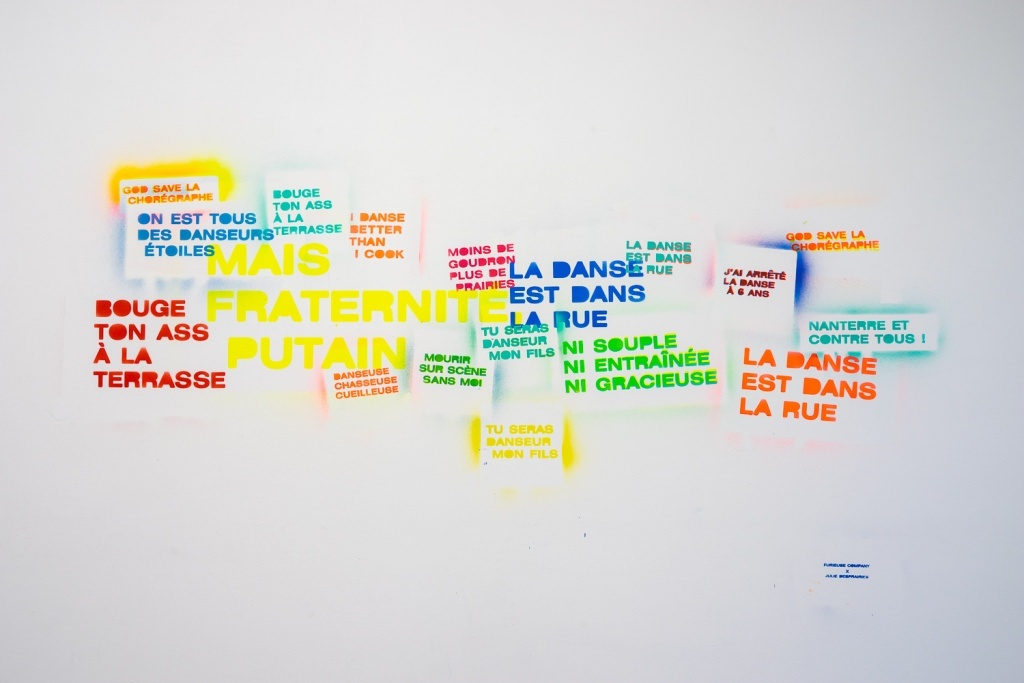 GOD SAVE LA
CHORÉGRAPHE
ON EST TOUS
DES DANSEURS
ÉTOILES
BOUGE
TON ASS
À LA
TERRASSE
I DANSE
BETTER
THAN
I COOK
MAIS
FRATERNITE
PUTAIN
BOUGE
TON ASS
À LA
TERRASSE
DANSEUSE
CHASSEUSE
CUEILLEUSE
MOINS DE
GOUDRON
PLUS DE
PRAIRIES
LA DANSE
EST DANS
LA RUE
LA DANSE
EST DANS
LA RUE
MOURIR
SUR SCÈNE
SANS MOI
TU SERAS
DANSEUR
MON FILS
NI SOUPLE
NI ENTRAÎNÉE
NI GRACIEUSE
TU SERAS
DANSEUR
MON FILS
J'AI ARRÊTÉ
LA DANSE
À 6 ANS
GOD SAVE LA
CHORÉGRAPHE
NANTERRE ET
CONTRE TOUS !
LA DANSE
EST DANS
LA RUE
FURIEUSE COMPANY
X
JULIE